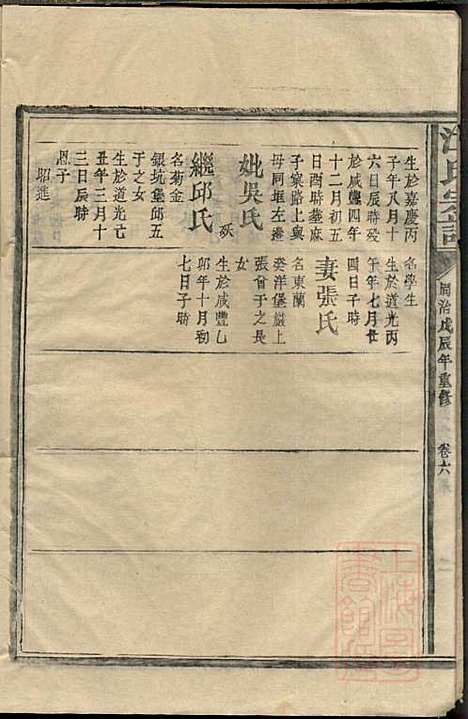 氏宗譜
同治戊辰年重修
卷六
生於嘉慶丙
子年八月十
六日辰時歿
於咸豐四年
十二月初五
日酉時墓麻
子寮路上與
母同塋左邊
妣吳氏
歿
繼邱氏
名菊金
銀坑堡邱五
于之女
生於道光亡
丑年三月十
三日辰時
恩子
昭進
名學生
生於道光丙
午年七月廿
四日子時
妻張氏
名東蘭
癸洋堡嶽上
張曾于之長
女
生於咸豐乙
卯年十月初
七日子時
上海圖書館藏